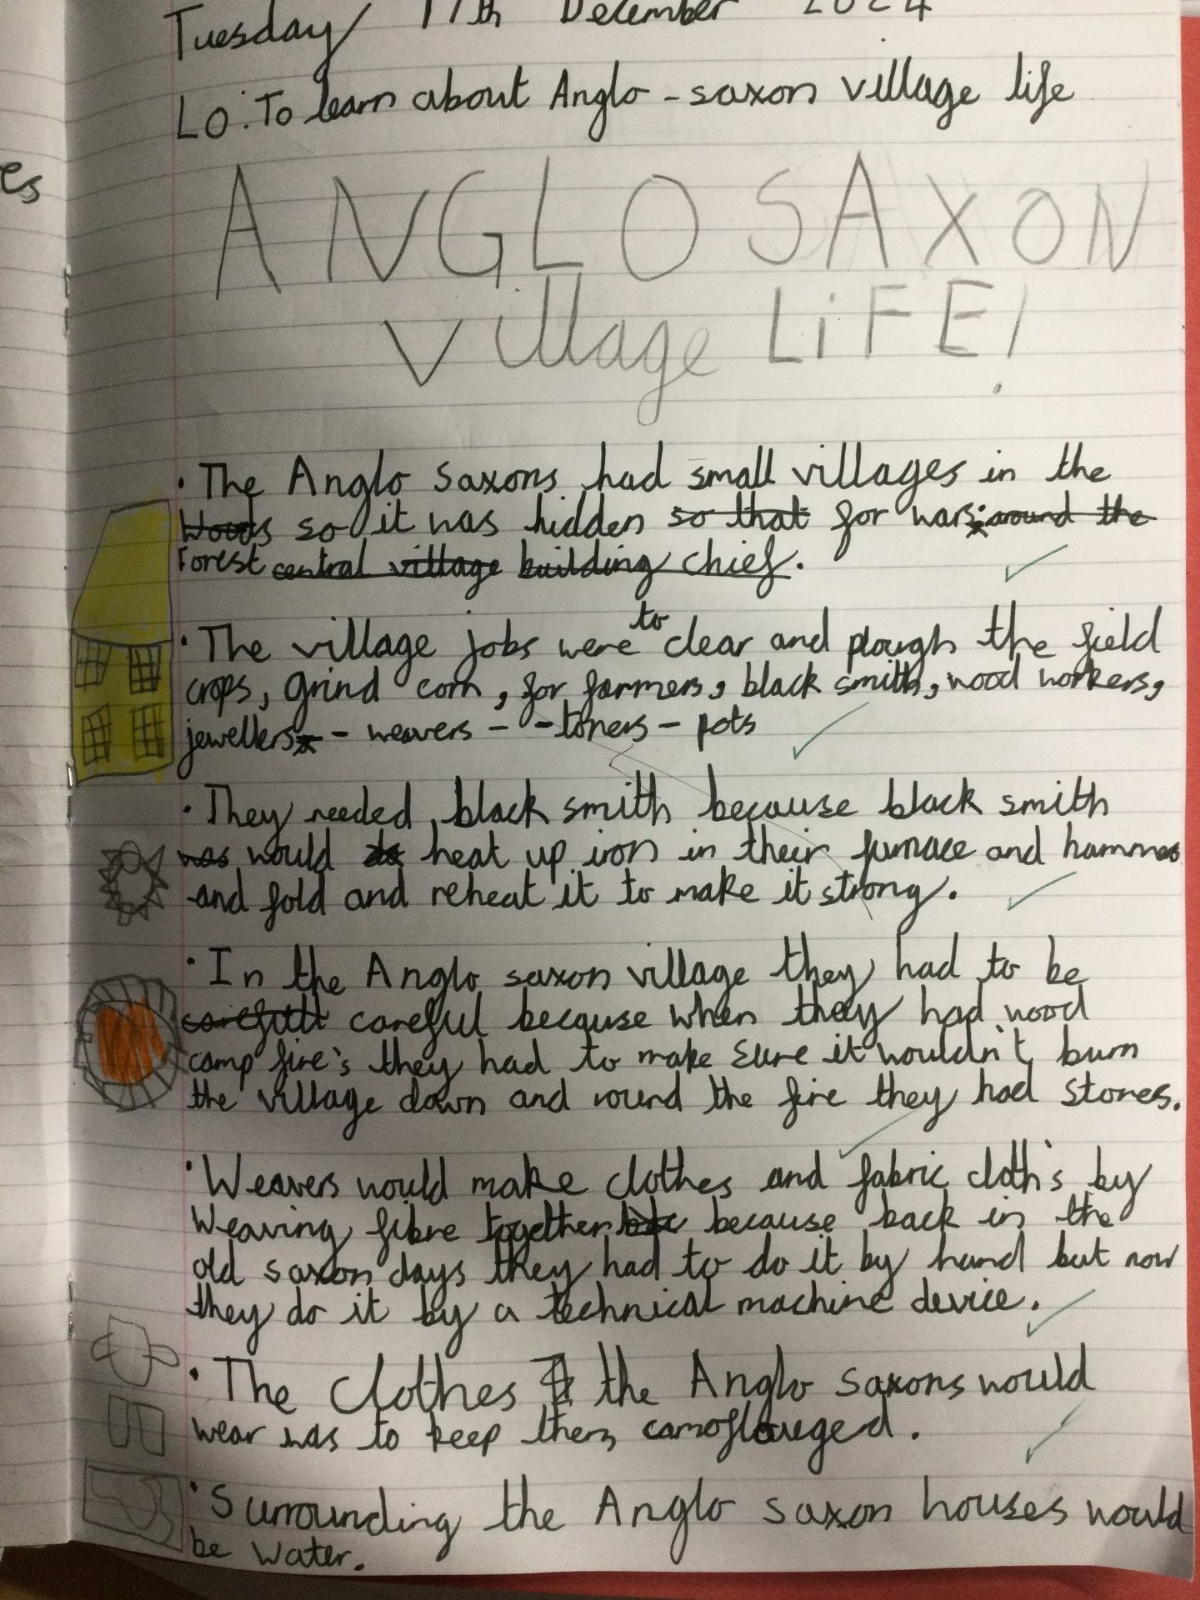 es
Tuesday 17th December 2024
LO: To learn about Anglo-saxon village life
ANGLO SAXON
Village LiFE!
· The Anglo Saxons had small villages in the
Woods so it was hidden so that for wars around the
Forest central village building chief.
· The village jobs were to clear and plough the field
crops, grind corn, for farmers, black smith, wood workers,
jewellers - weavers - - toners - pots
· They needed black smith because black smith
was would do heat up iron in their furnace and hammer
and fold and reheat it to make it strong.
· In the Anglo saxon village they had to be
carefull careful because when they had wood
camp fire's they had to make sure it wouldn't burn
the village down and round the fire they had stones.
· Weavers would make clothes and fabric cloth's by
Weaving fibre together because back in the
old saxon days they had to do it by hand but now
they do it by a technical machine device.
· The clothes the Anglo saxons would
wear was to keep them camoflauged.
· Surrounding the Anglo saxon houses would
be water.